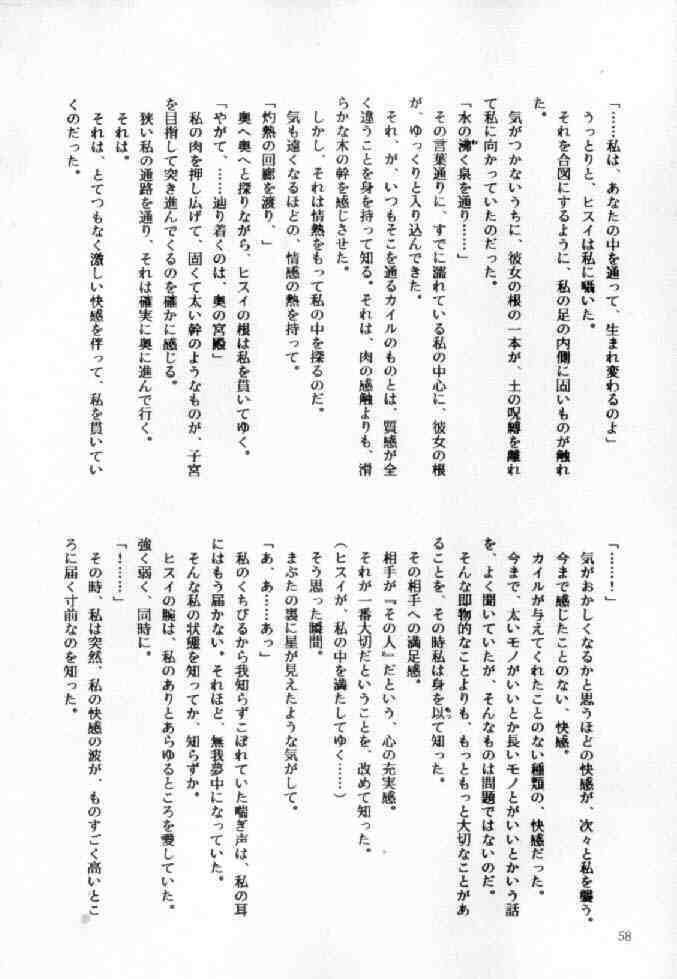 「……私は、あなたの中を通って、生まれ変わるのよ」
うっとりと、ヒスイは私に囁いた。
それを合図にするように、私の足の内側に固いものが触れ
た。
気がつかないうちに、彼女の根の一本が、土の呪縛を離れ
て私に向かっていたのだった。
「水の沸く泉を通り……」
その言葉通りに、すでに濡れている私の中心に、彼女の根
が、ゆっくりと入り込んできた。
それ、が、いつもそこを通るカイルのものとは、質感が全
く違うことを身を持って知る。それは、肉の感触よりも、滑
らかな木の幹を感じさせた。
しかし、それは情熱をもって私の中を探るのだ。
気も遠くなるほどの、情感の熱を持って。
「灼熱の回廊を渡り、」
奥へ奥へと探りながら、ヒスイの根は私を貫いてゆく。
「やがて、……辿り着くのは、奥の宮殿」
私の肉を押し広げて、固くて太い幹のようなものが、子宮
を目指して突き進んでくるのを確かに感じる。
狭い私の通路を通り、それは確実に奥に進んで行く。
それは。
それは、とてつもなく激しい快感を伴って、私を貫いてい
くのだった。
「……！」
気がおかしくなるかと思うほどの快感が、次々と私を襲う。
今まで感じたことのない、快感。
カイルが与えてくれたことのない種類の、快感だった。
今まで、太いモノがいいとか長いモノとがいいとかいう話
を、よく聞いていたが、そんなものは問題ではないのだ。
そんな即物的なことよりも、もっともっと大切なことがあ
ることを、その時私は身を以て知った。
その相手への満足感。
相手が『その人』だという、心の充実感。
それが一番大切だということを、改めて知った。
（ヒスイが、私の中を満たしてゆく……）
そう思った瞬間。
まぶたの裏に星が見えたような気がして。
「あ、あ……あっ」
私のくちびるから我知らずこぼれていた喘ぎ声は、私の耳
にはもう届かない。それほど、無我夢中になっていた。
そんな私の状態を知ってか、知らずか。
ヒスイの腕は、私のありとあらゆるところを愛していた。
強く弱く、同時に。
「！………」
その時、私は突然、私の快感の波が、ものすごく高いとこ
ろに届く寸前なのを知った。
58